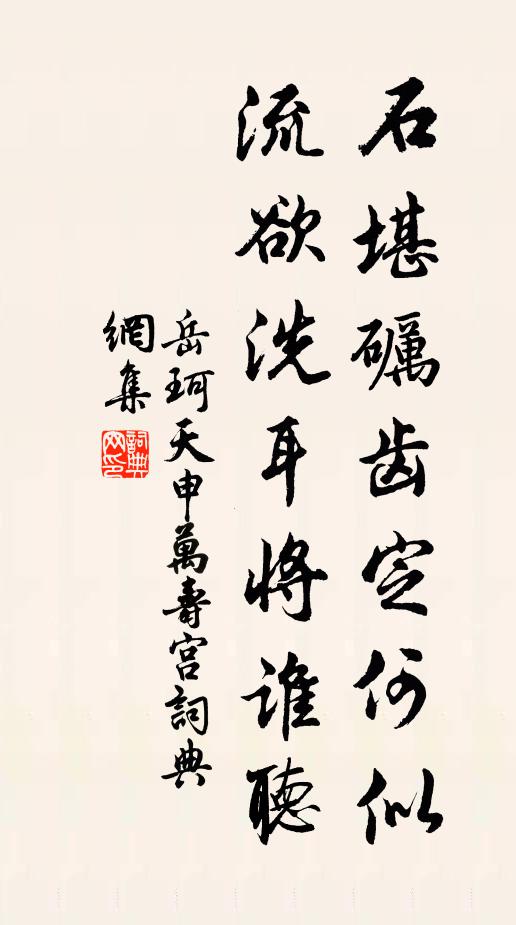 石堪礪齒定何似
流欲洗耳將誰聽
岳珂天申萬壽宮詞典
網集
詞典
网印